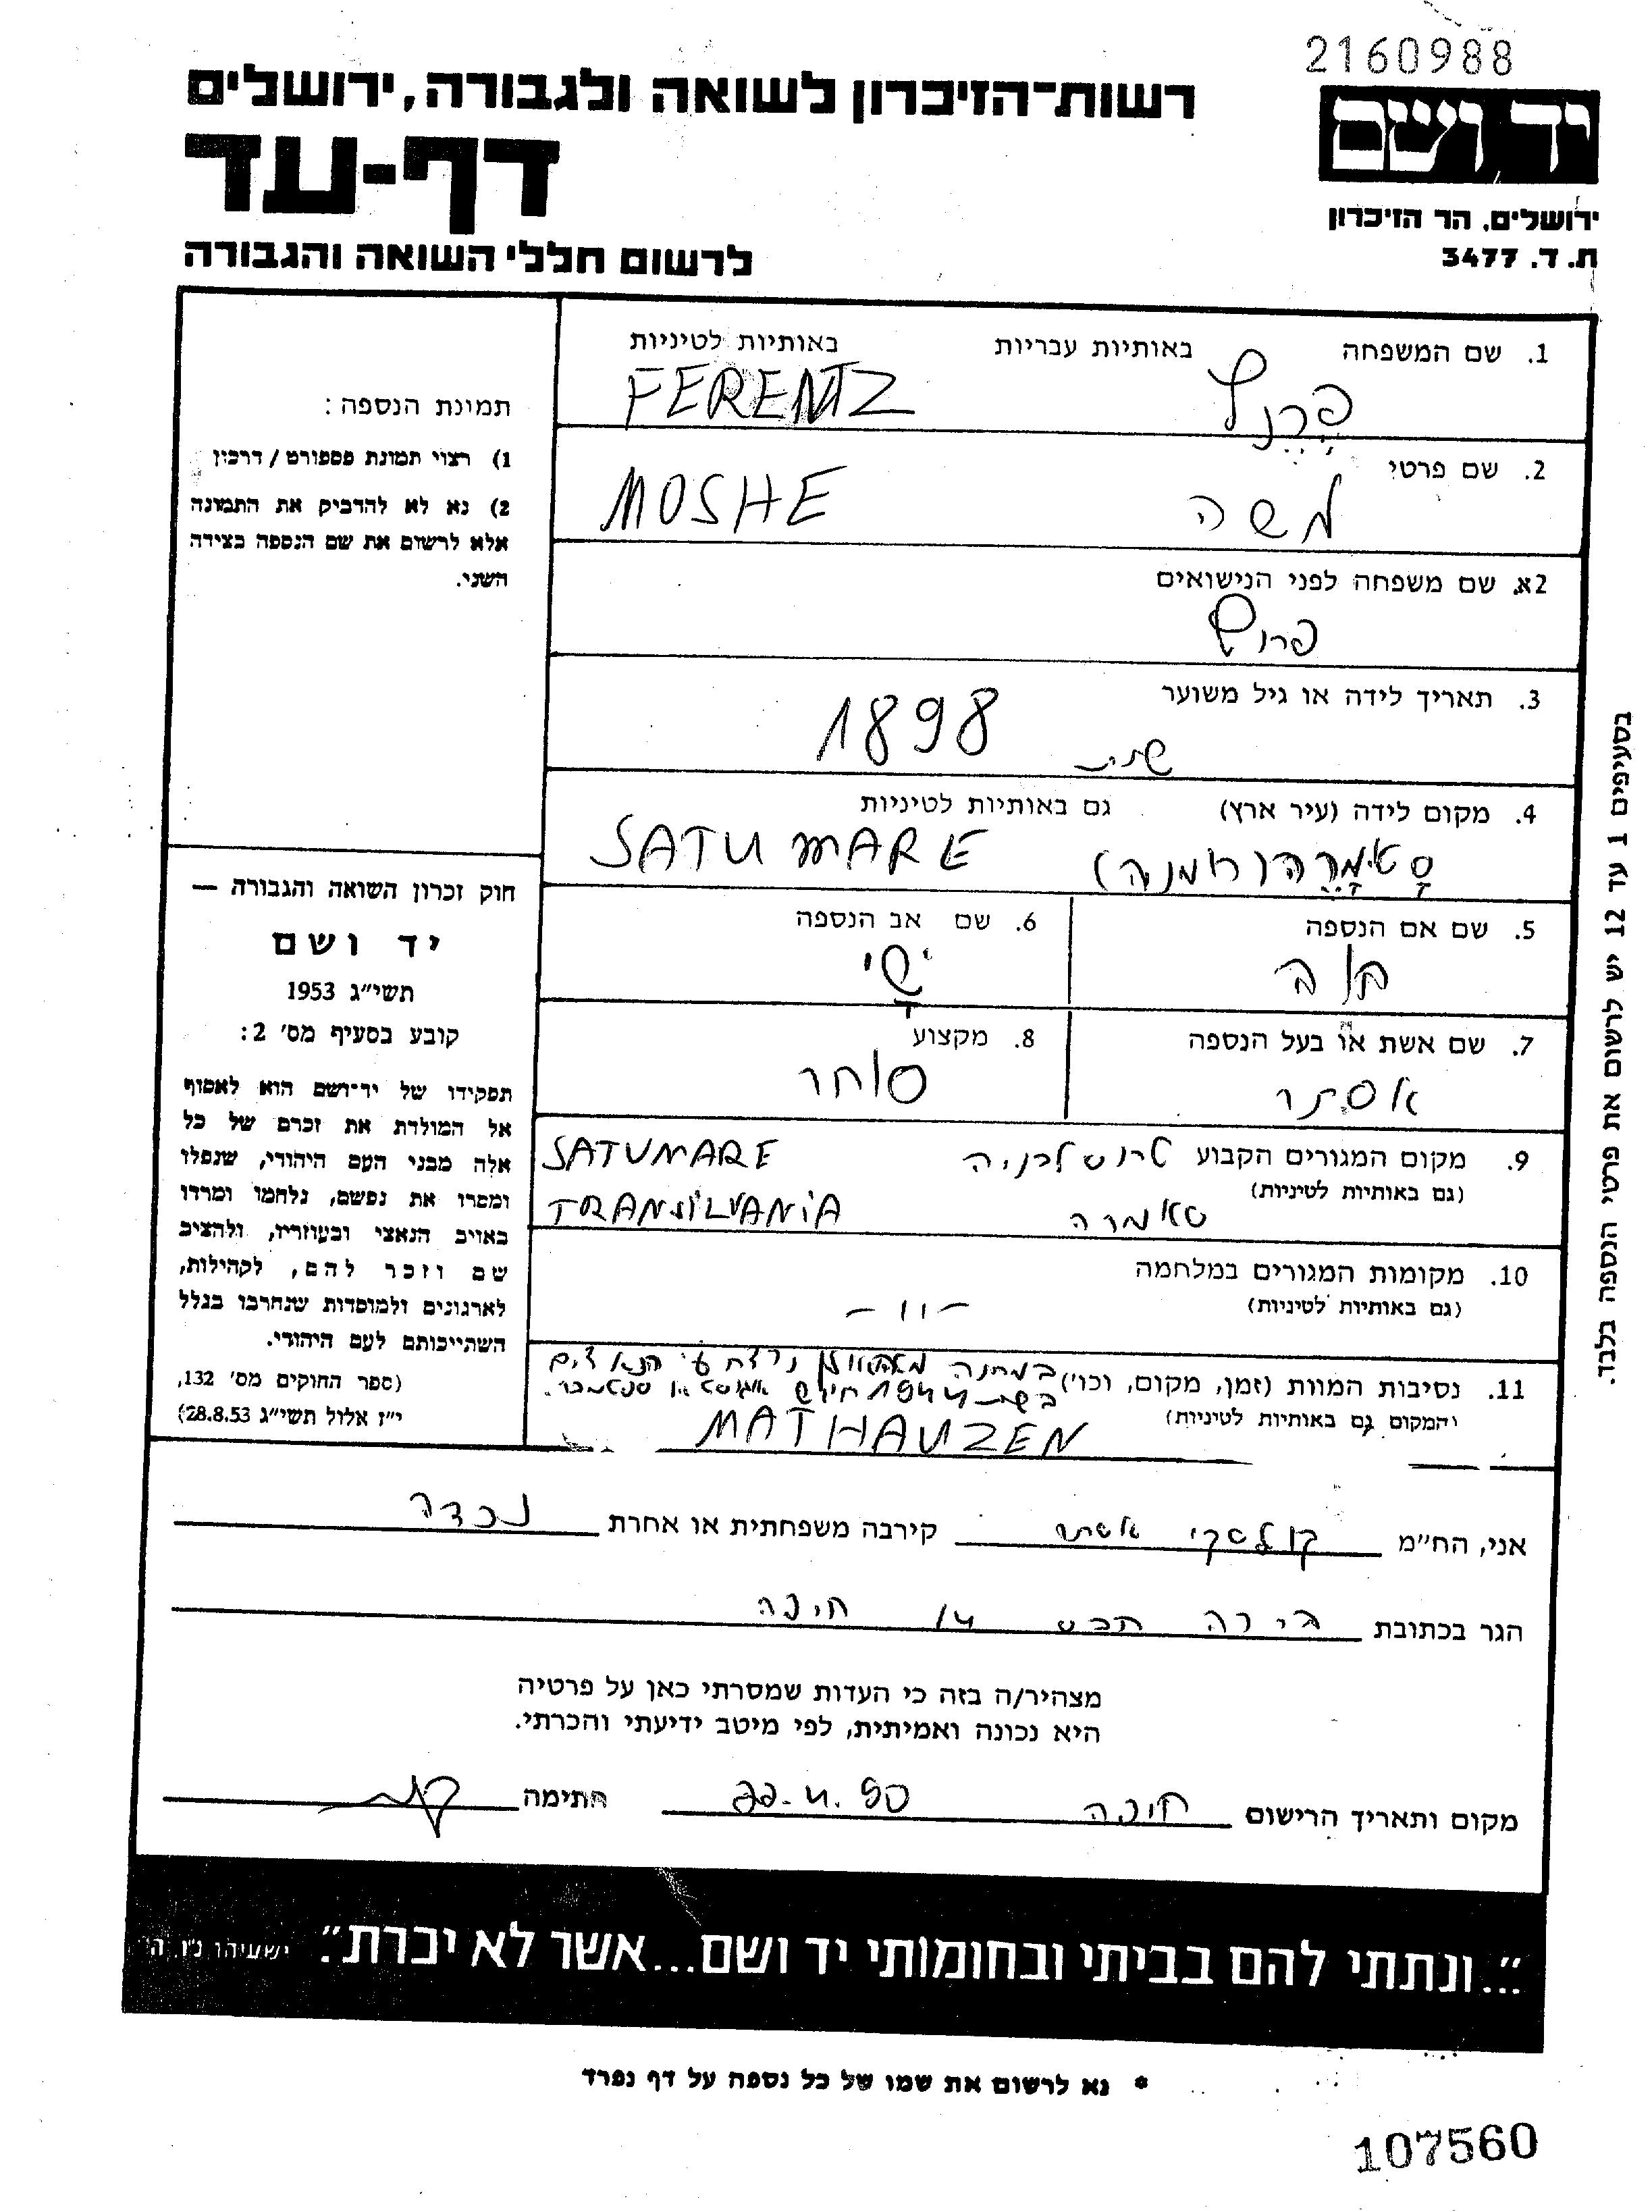 2160988
רשות־הזיכרון לשואה ולגבורה, ירושלים
יד ושם
דף-עד
ירושלים, הר הזיכרון
ת. ד. 3477
לרשום חללי השואה והגבורה
1. שם המשפחה באותיות עבריות באותיות לטיניות
פרנץ FERENTZ
2. שם פרטי
משה MOSHE
2א. שם משפחה לפני הנישואים
3. תאריך לידה או גיל משוער
שנת 1898
4. מקום לידה (עיר ארץ) גם באותיות לטיניות
סטימרה (רומניה) SATU MARE
5. שם אם הנספה
חוה
6. שם אב הנספה
ישי
7. שם אשת או בעל הנספה
אסתר
8. מקצוע
סוחר
9. מקום המגורים הקבוע טרנסלבניה SATUMARE
(גם באותיות לטיניות)
סאמרה TRANSILVANIA
10. מקומות המגורים במלחמה
(גם באותיות לטיניות)
-11-
11. נסיבות המוות (זמן, מקום, וכו') במחנה מאטהאוזן נרצח ע"י הנאצים
בשנת 1944 חודש אוגוסט או ספטמבר.
(המקום גם באותיות לטיניות)
MATHAUZEN
תמונת הנספה:
1) רצוי תמונת פספורט / דרכון
2) נא לא להדביק את התמונה
אלא לרשום את שם הנספה בצידה
השני.
חוק זכרון השואה והגבורה —
יד ושם
תשי"ג 1953
קובע בסעיף מס' 2:
תפקידו של יד־ושם הוא לאסוף
אל המולדת את זכרם של כל
אלה מבני העם היהודי, שנפלו
ומסרו את נפשם, נלחמו ומרדו
באויב הנאצי ובעוזריו, ולהציב
שם וזכר להם, לקהילות,
לארגונים ולמוסדות שנחרבו בגלל
השתייכותם לעם היהודי.
(ספר החוקים מס' 132,
י"ז אלול תשי"ג 28.8.53)
בסעיפים 1 עד 12 יש לרשום את פרטי הנספה בלבד.
אני, הח"מ אסתר קירבה משפחתית או אחרת נכדה
הגר בכתובת 14 חיפה
מצהיר/ה בזה כי העדות שמסרתי כאן על פרטיה
היא נכונה ואמיתית, לפי מיטב ידיעתי והכרתי.
מקום ותאריך הרישום חיפה 22.4.90 חתימה
"...ונתתי להם בביתי ובחומותי יד ושם...אשר לא יכרת". ישעיהו נ"ו ה'
* נא לרשום את שמו של כל נספה על דף נפרד
107560